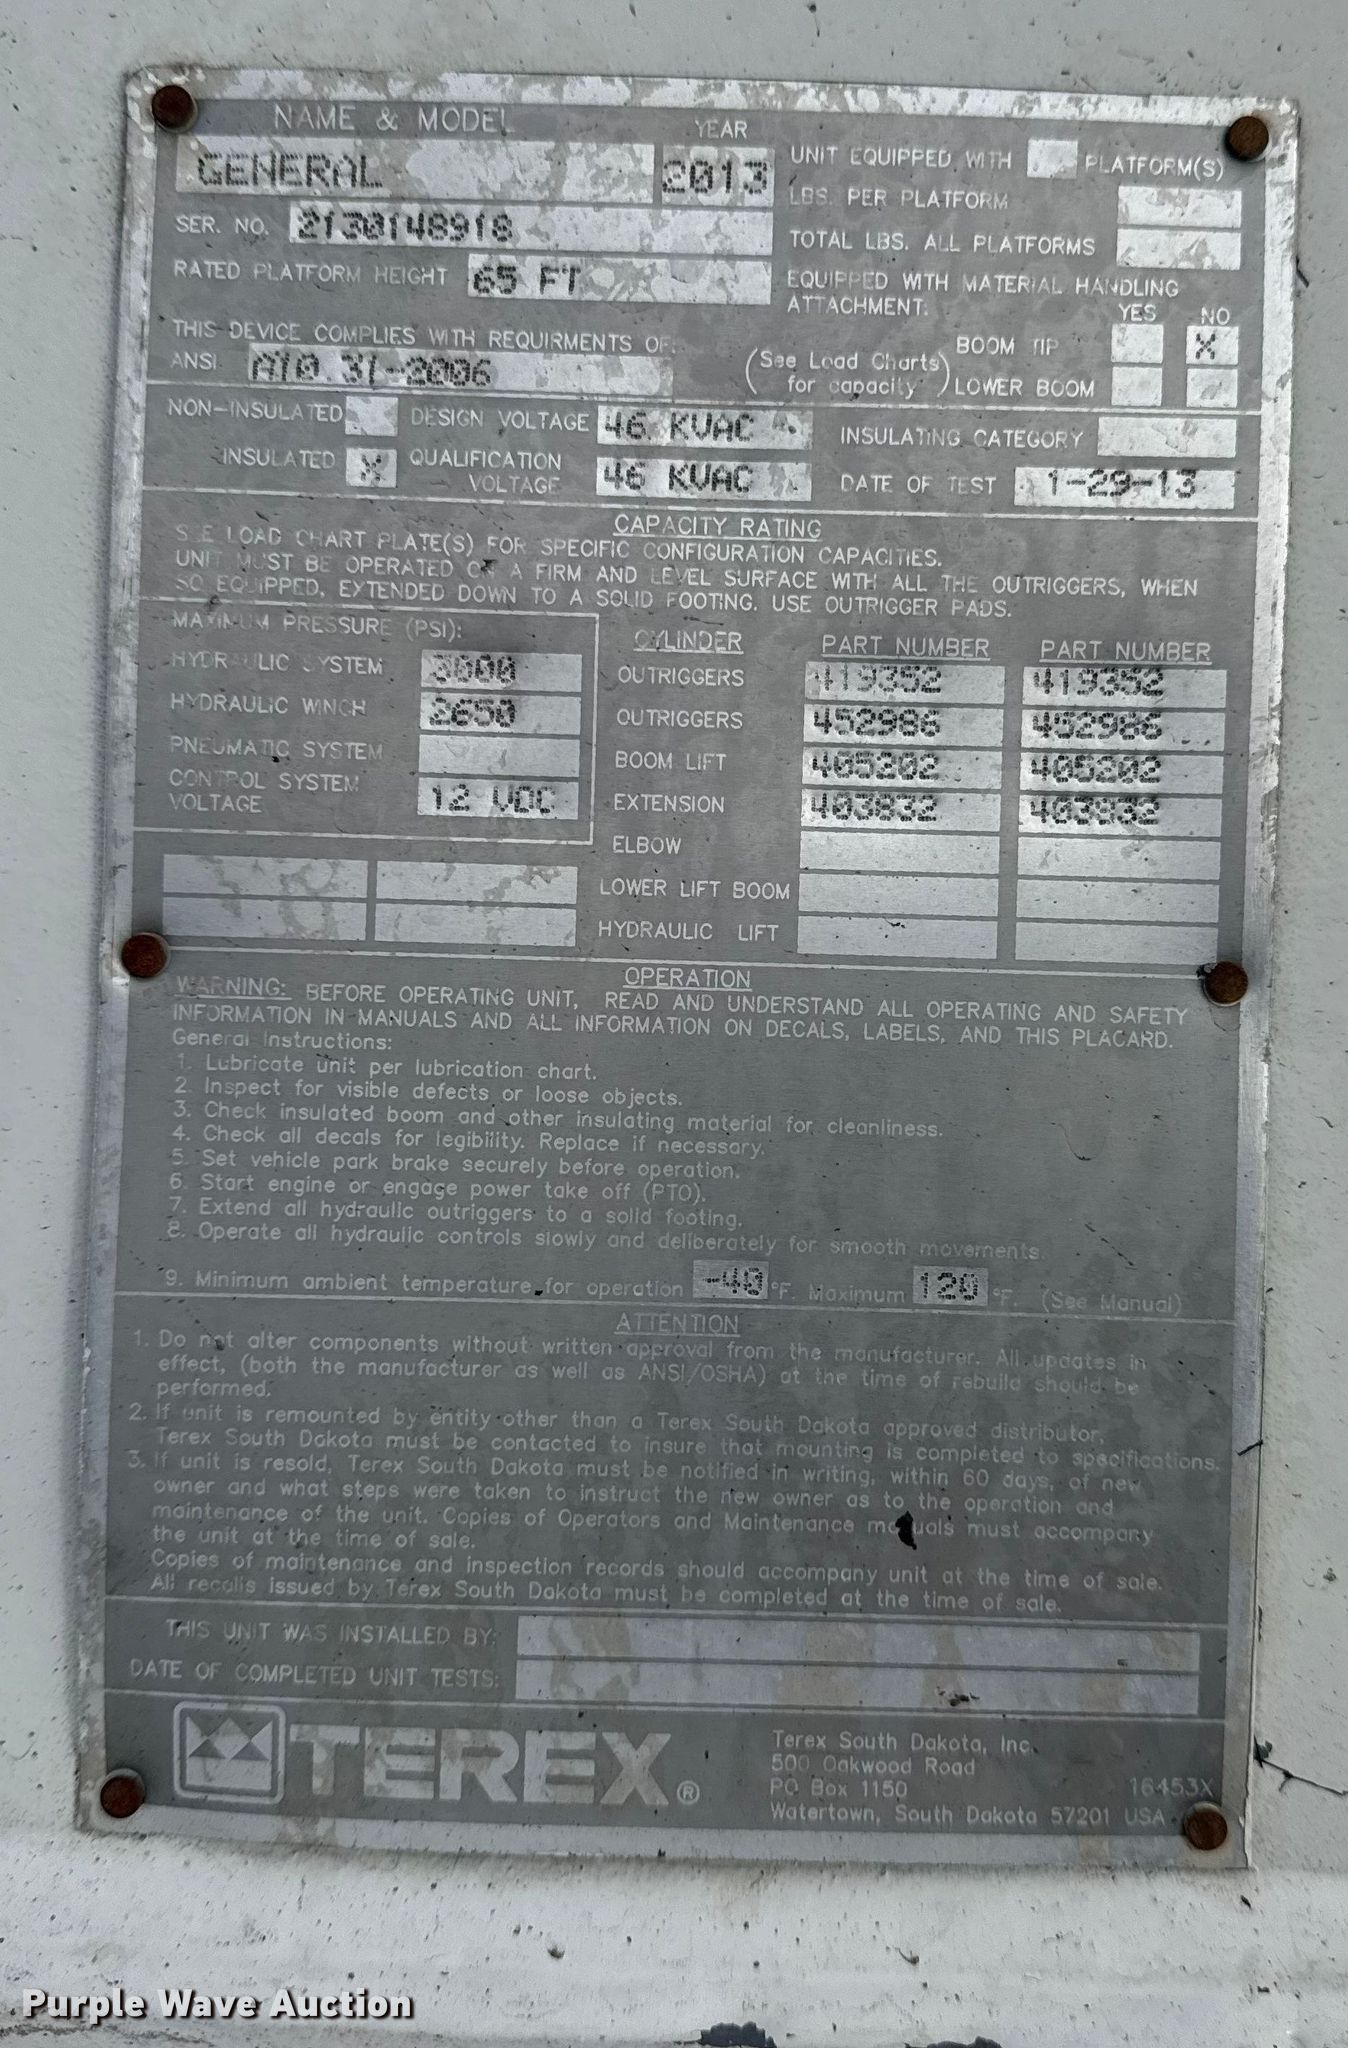 NAME & MODEL
YEAR
GENERAL
2013
SER. NO. 2130148918
RATED PLATFORM HEIGHT 65 FT
THIS DEVICE COMPLIES WITH REQUIRMENTS OF:
ANSI A10.31-2006
UNIT EQUIPPED WITH PLATFORM(S)
LBS. PER PLATFORM
TOTAL LBS. ALL PLATFORMS
EQUIPPED WITH MATERIAL HANDLING
ATTACHMENT:
YES NO
(See Load Charts for capacity)
BOOM TIP X
LOWER BOOM
NON-INSULATED
INSULATED X
DESIGN VOLTAGE 46 KVAC
QUALIFICATION
VOLTAGE 46 KVAC
INSULATING CATEGORY
DATE OF TEST 1-29-13
CAPACITY RATING
SEE LOAD CHART PLATE(S) FOR SPECIFIC CONFIGURATION CAPACITIES.
UNIT MUST BE OPERATED ON A FIRM AND LEVEL SURFACE WITH ALL THE OUTRIGGERS, WHEN
SO EQUIPPED, EXTENDED DOWN TO A SOLID FOOTING. USE OUTRIGGER PADS.
MAXIMUM PRESSURE (PSI):
HYDRAULIC SYSTEM 3000
HYDRAULIC WINCH 2650
PNEUMATIC SYSTEM
CONTROL SYSTEM
VOLTAGE 12 VDC
CYLINDER PART NUMBER PART NUMBER
OUTRIGGERS 419352 419352
OUTRIGGERS 452986 452986
BOOM LIFT 405202 405202
EXTENSION 403832 403832
ELBOW
LOWER LIFT BOOM
HYDRAULIC LIFT
OPERATION
WARNING: BEFORE OPERATING UNIT, READ AND UNDERSTAND ALL OPERATING AND SAFETY
INFORMATION IN MANUALS AND ALL INFORMATION ON DECALS, LABELS, AND THIS PLACARD.
General Instructions:
1. Lubricate unit per lubrication chart.
2. Inspect for visible defects or loose objects.
3. Check insulated boom and other insulating material for cleanliness.
4. Check all decals for legibility. Replace if necessary.
5. Set vehicle park brake securely before operation.
6. Start engine or engage power take off (PTO).
7. Extend all hydraulic outriggers to a solid footing.
8. Operate all hydraulic controls slowly and deliberately for smooth movements.
9. Minimum ambient temperature for operation -40 °F. Maximum 120 °F. (See Manual)
ATTENTION
1. Do not alter components without written approval from the manufacturer. All updates in
effect, (both the manufacturer as well as ANSI/OSHA) at the time of rebuild should be
performed.
2. If unit is remounted by entity other than a Terex South Dakota approved distributor,
Terex South Dakota must be contacted to insure that mounting is completed to specifications.
3. If unit is resold, Terex South Dakota must be notified in writing, within 60 days, of new
owner and what steps were taken to instruct the new owner as to the operation and
maintenance of the unit. Copies of Operators and Maintenance manuals must accompany
the unit at the time of sale.
Copies of maintenance and inspection records should accompany unit at the time of sale.
All recalls issued by Terex South Dakota must be completed at the time of sale.
THIS UNIT WAS INSTALLED BY:
DATE OF COMPLETED UNIT TESTS:
TEREX®
Terex South Dakota, Inc.
500 Oakwood Road
PO Box 1150
Watertown, South Dakota 57201 USA
16453X
Purple Wave Auction